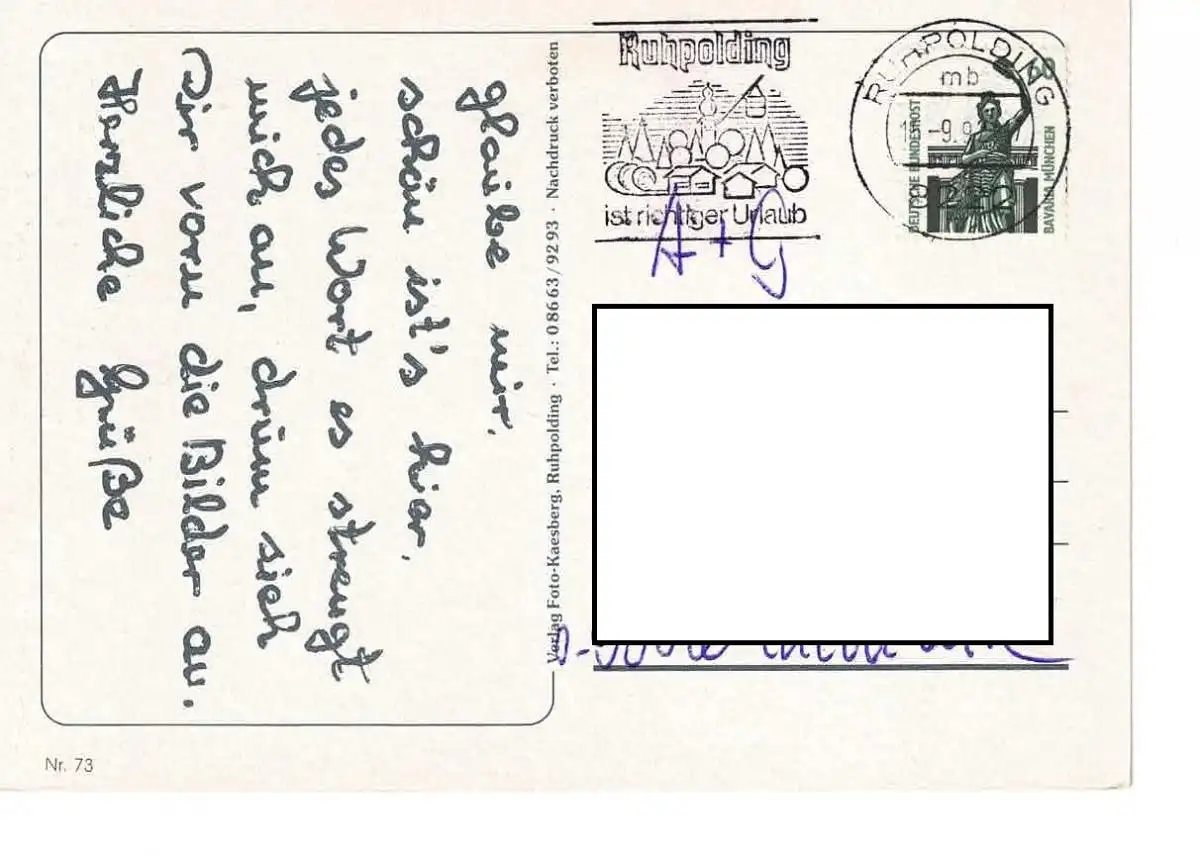 glaube mir,
schön ist's hier,
jedes Wort es strengt
mich an, drum sieh
Dir vorn die Bilder an.
Herzliche Grüße
Verlag Foto-Kaesberg, Ruhpolding · Tel.: 08663/9293 · Nachdruck verboten
Ruhpolding
ist richtiger Urlaub
RUHPOLDING
mb
DEUTSCHE BUNDESPOST
60
BAVARIA MÜNCHEN
A + G
Nr. 73